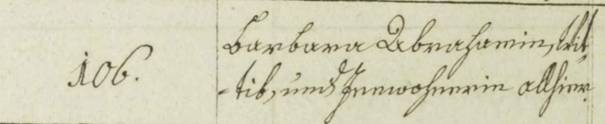 106.
Barbara Abrahamin, Wit-
-tib, und Innwohnerin allhier.